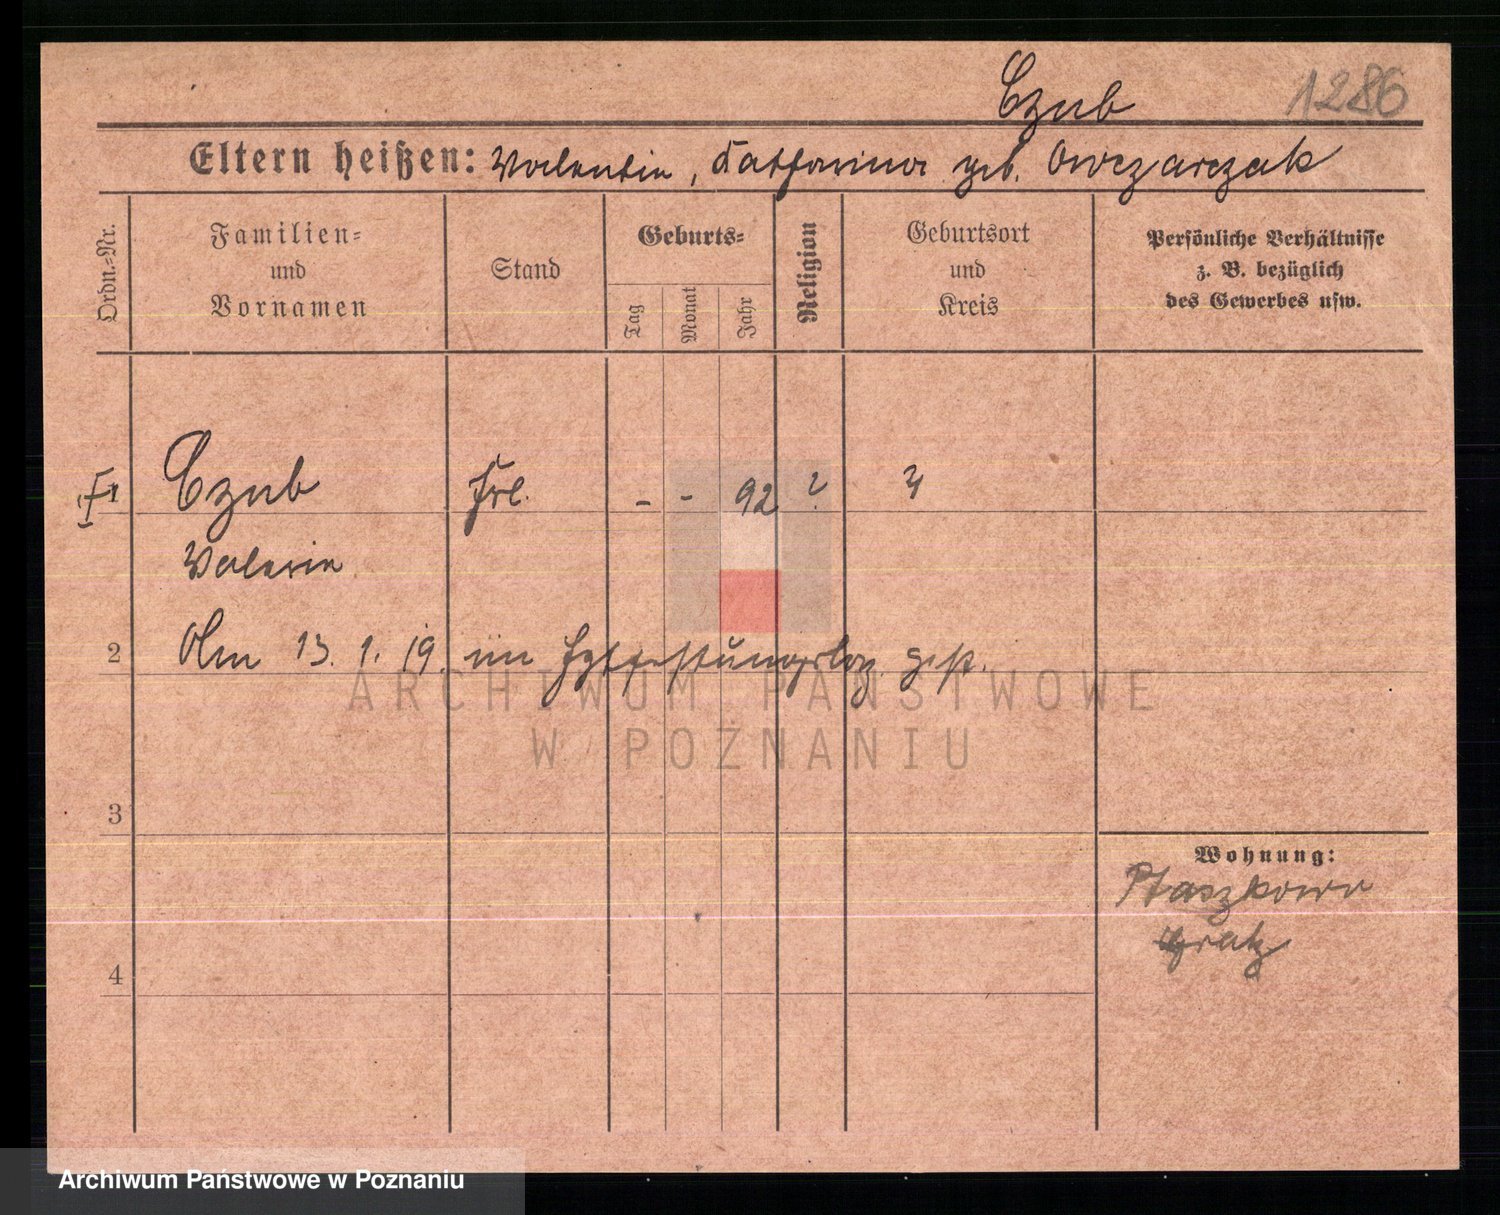 Czub 1286
Eltern heißen: Valentin, Katharina geb. Owczarczak
Ordn.-Nr.
Familien-
und
Vornamen
Stand
Geburts-
Tag
Monat
Jahr
Religion
Geburtsort
und
Kreis
Persönliche Verhältnisse
z. B. bezüglich
des Gewerbes usw.
1 Czub Frl. - - 92 ? ?
Valerie
2 Am 13. 1. 19. im gest.
ARCHIWUM PAŃSTWOWE
W POZNANIU
3
Wohnung:
Ptaszkowo
Gratz
4
Archiwum Państwowe w Poznaniu